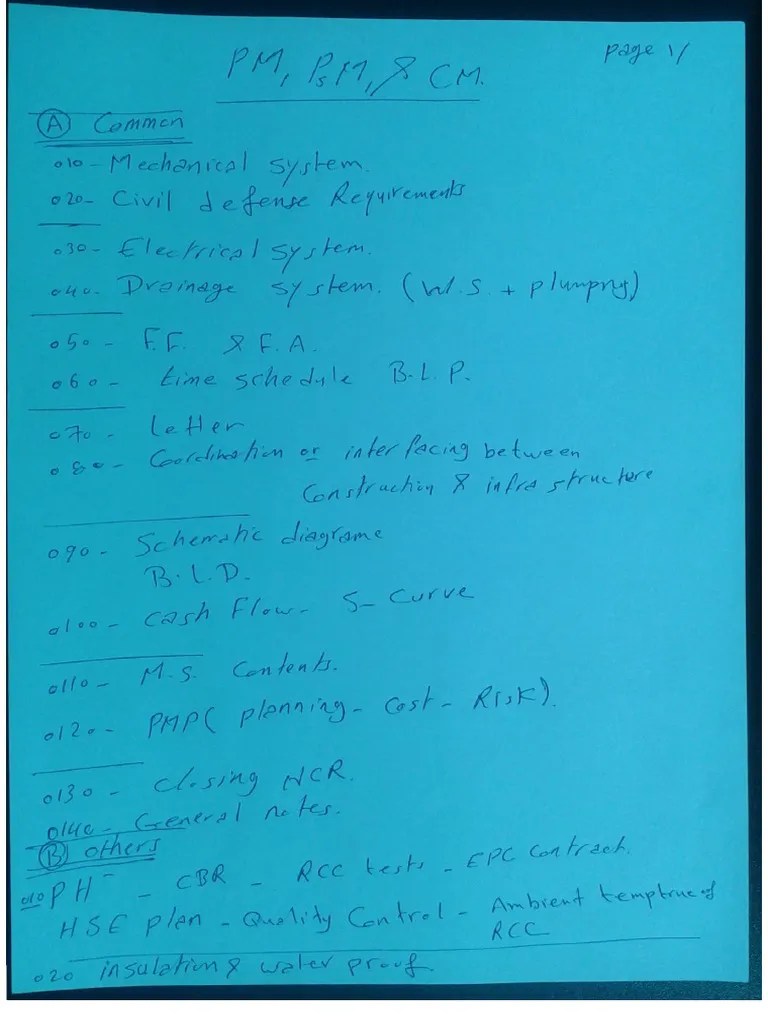 page 1/
PM, PsM, & CM.
(A) Common
010 - Mechanical system.
020 - Civil defense Requirements
030 - Electrical system.
040 - Drainage system. (W.S. + plumpng)
050 - F.F. & F.A.
060 - time schedule B.L.P.
070 - Letter
080 - Coordination or interfacing between
Construction & infra structure
090 - Schematic diagrame
B.L.D.
0100 - Cash Flow - S - Curve
0110 - M.S. Contents.
0120 - PMP ( planning - Cost - Risk).
0130 - Closing NCR.
0140 - General notes.
(B) others
010 PH - CBR - RCC tests - EPC Contract.
HSE plan - Quality Control - Ambient temptrue of
RCC
020 insulation & water proof.